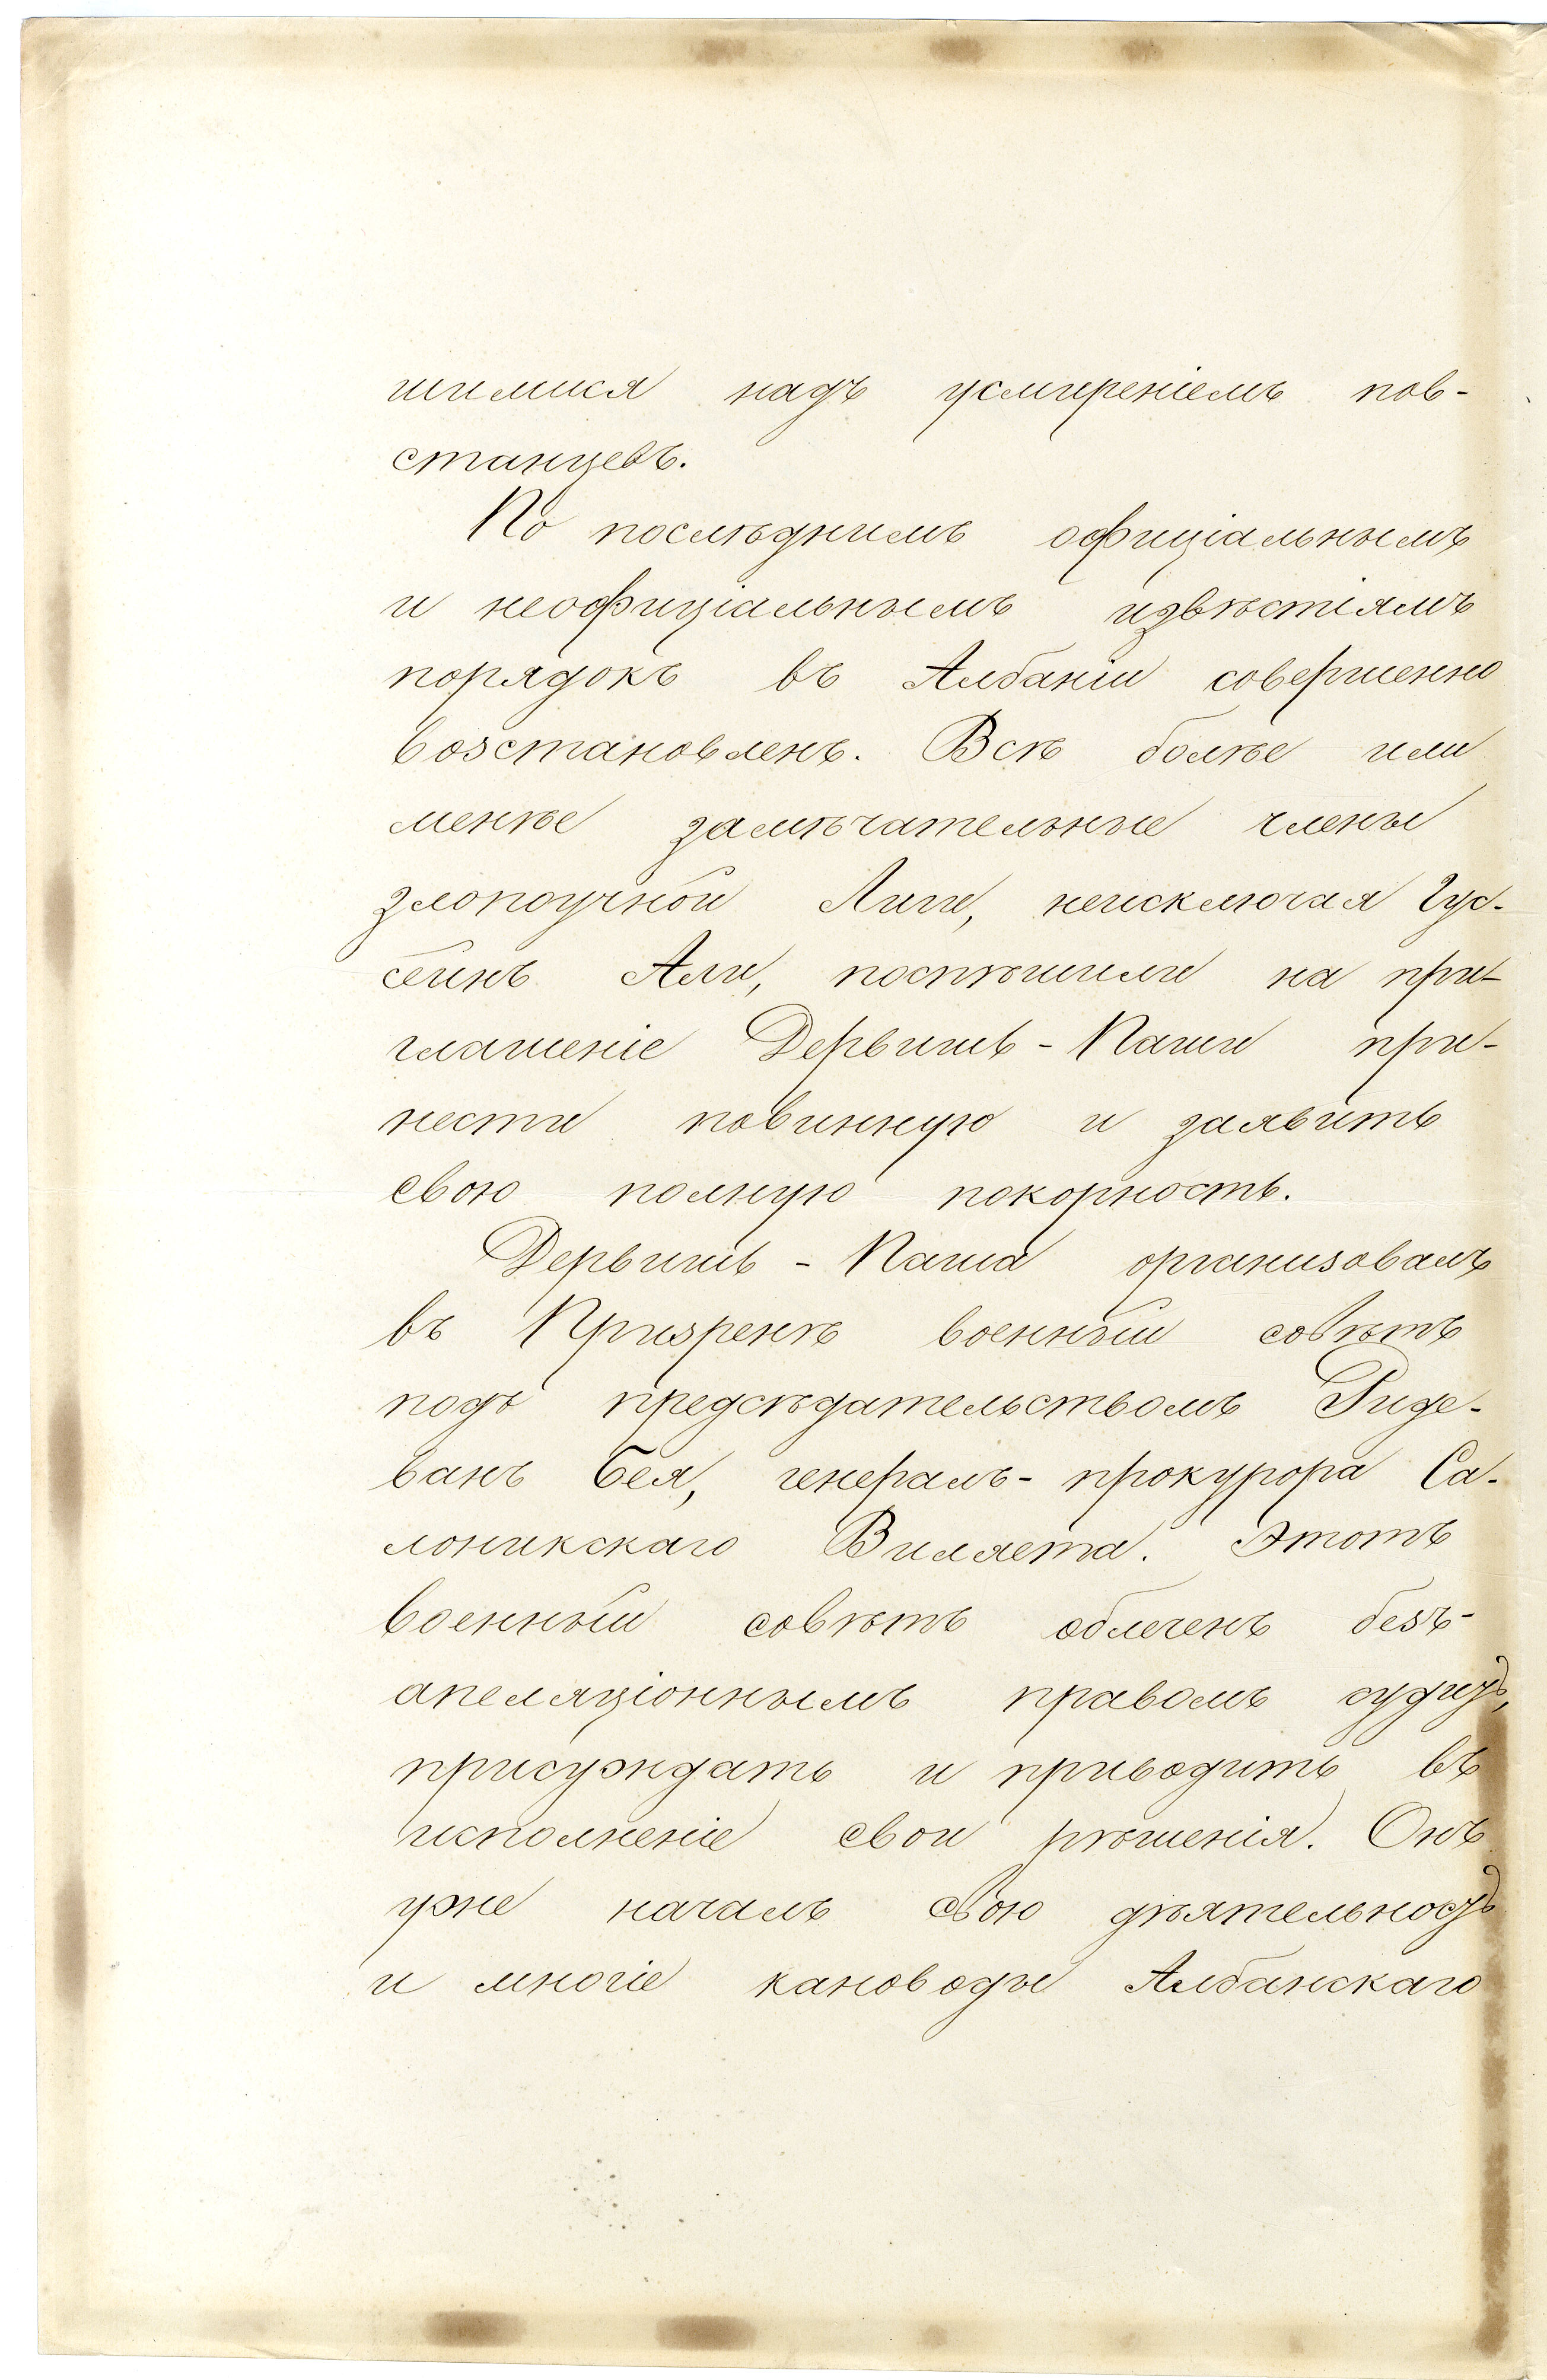 шимися надъ усмиреніемъ пов-
станцевъ.
По послѣднимъ официціальнымъ
и неофиціальнымъ извѣстіямъ
порядокъ въ Албаніи совершенно
возстановленъ. Всѣ болѣе или
менѣе замѣчательные члены
злопоучной Лиги, неисключая Гус-
сейнъ Али, поспѣшили на при-
глашеніе Дервишъ-Паши при-
нести повинную и заявить
свою полную покорность.
Дервишъ-Паша организовалъ
въ Призренѣ военный совѣтъ
подъ предсѣдательствомъ Риде-
ванъ Бея, генералъ-прокурора Са-
лоникскаго Вилаета. Этотъ
военный совѣтъ облеченъ безъ-
апелляціоннымъ правомъ судить,
присуждать и приводить въ
исполненіе свои рѣшенія. Онъ
уже началъ свою дѣятельность
и многіе кановоды Албанскаго